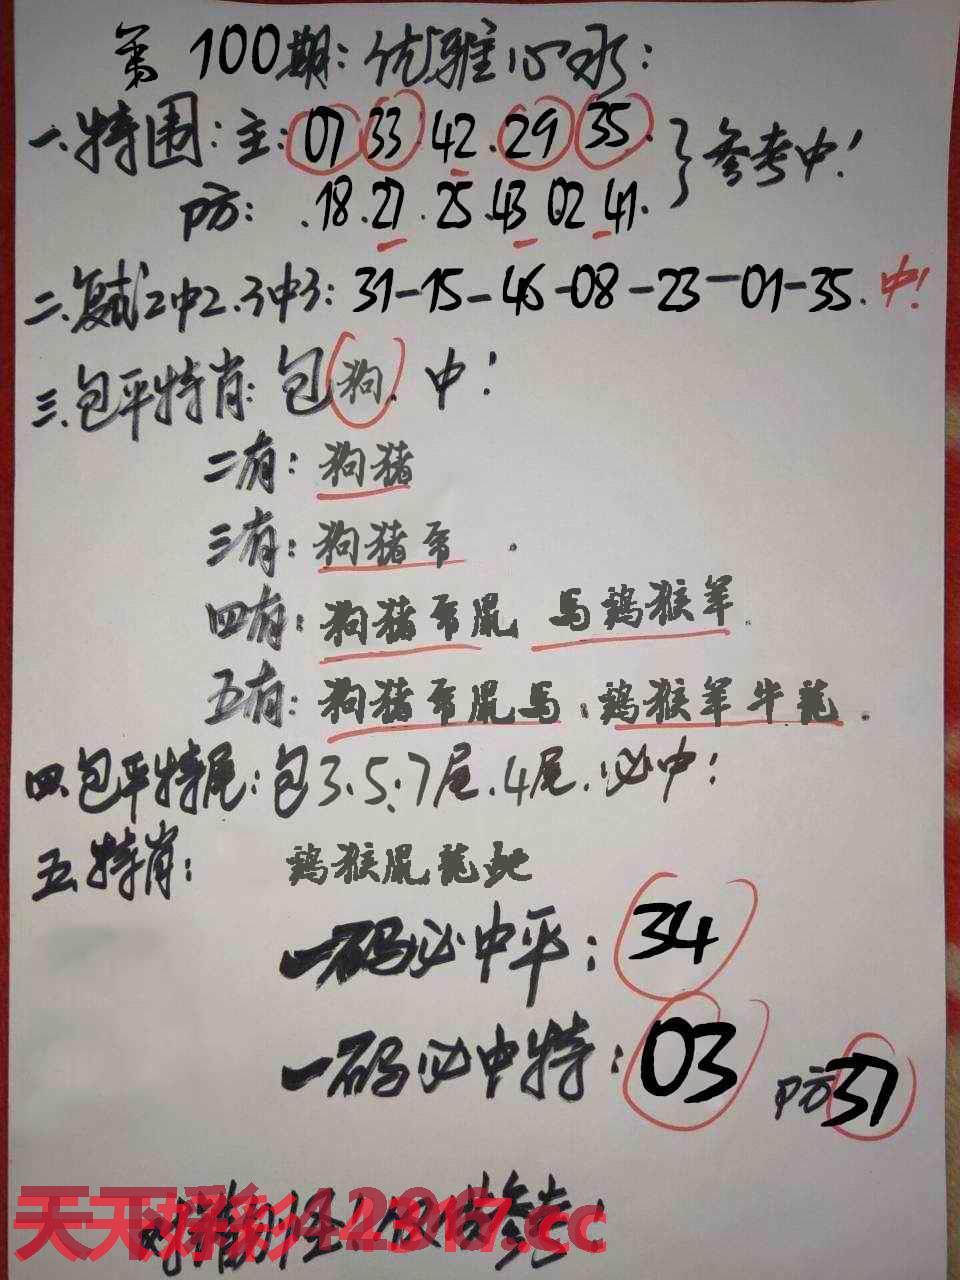 第100期:优雅心水:
一.特围:主:07 33 42.29 35.
防:.18.27.25.43 02 41.
参考中!
二.复式2中2.3中3:31-15-46-08-23-01-35.中!
三.包平特肖:包狗.中!
二有:狗猪
三有:狗猪兔.
四有:狗猪兔鼠 马鸡猴羊.
五有:狗猪兔鼠马.鸡猴羊牛龍.
四.包平特尾:包3.5.7尾.4尾.必中!
五.特肖:鸡猴鼠龍蛇
一码必中平:34
一码必中特:03 防37
天下彩 12317.cc